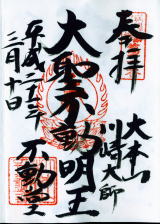 奉拝
大本山
川崎大師
大聖不動明王
不動堂
平成二十三年
三月十日